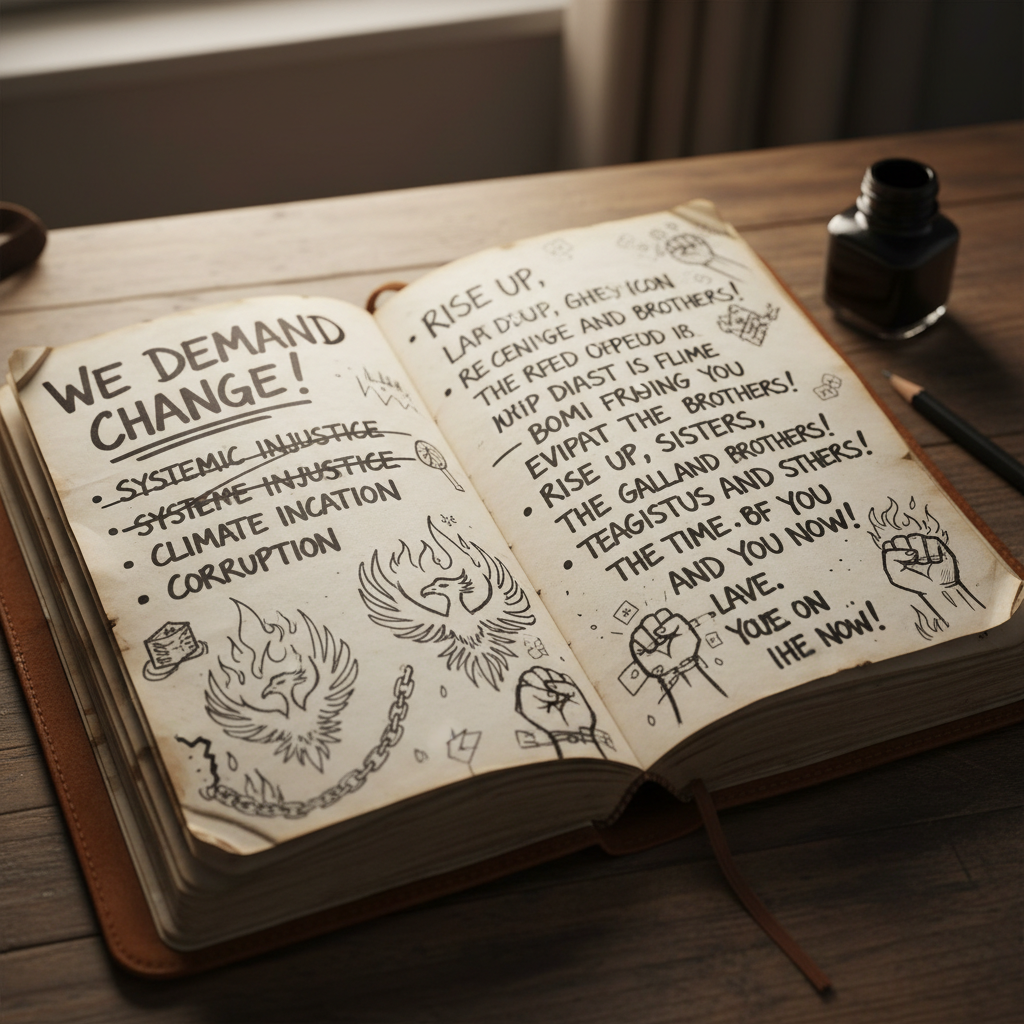 WE DEMAND
CHANGE!
• SYSTEMIC INJUSTICE
• SYSTEME INJUSTICE
• CLIMATE INCATION
• CORRUPTION
• RISE UP,
• RE CENINGE AND BROTHERS!
• THE RFED OFPEUD IS
DIAST IS FLIME
— BOMI YOU
EVIPAT THE BROTHERS!
RISE UP, SISTERS,
• THE GALLAND BROTHERS!
TEAGISTUS AND STHERS!
• THE TIME. BF YOU
AND YOU NOW!
LAVE.
ON
IHE NOW!